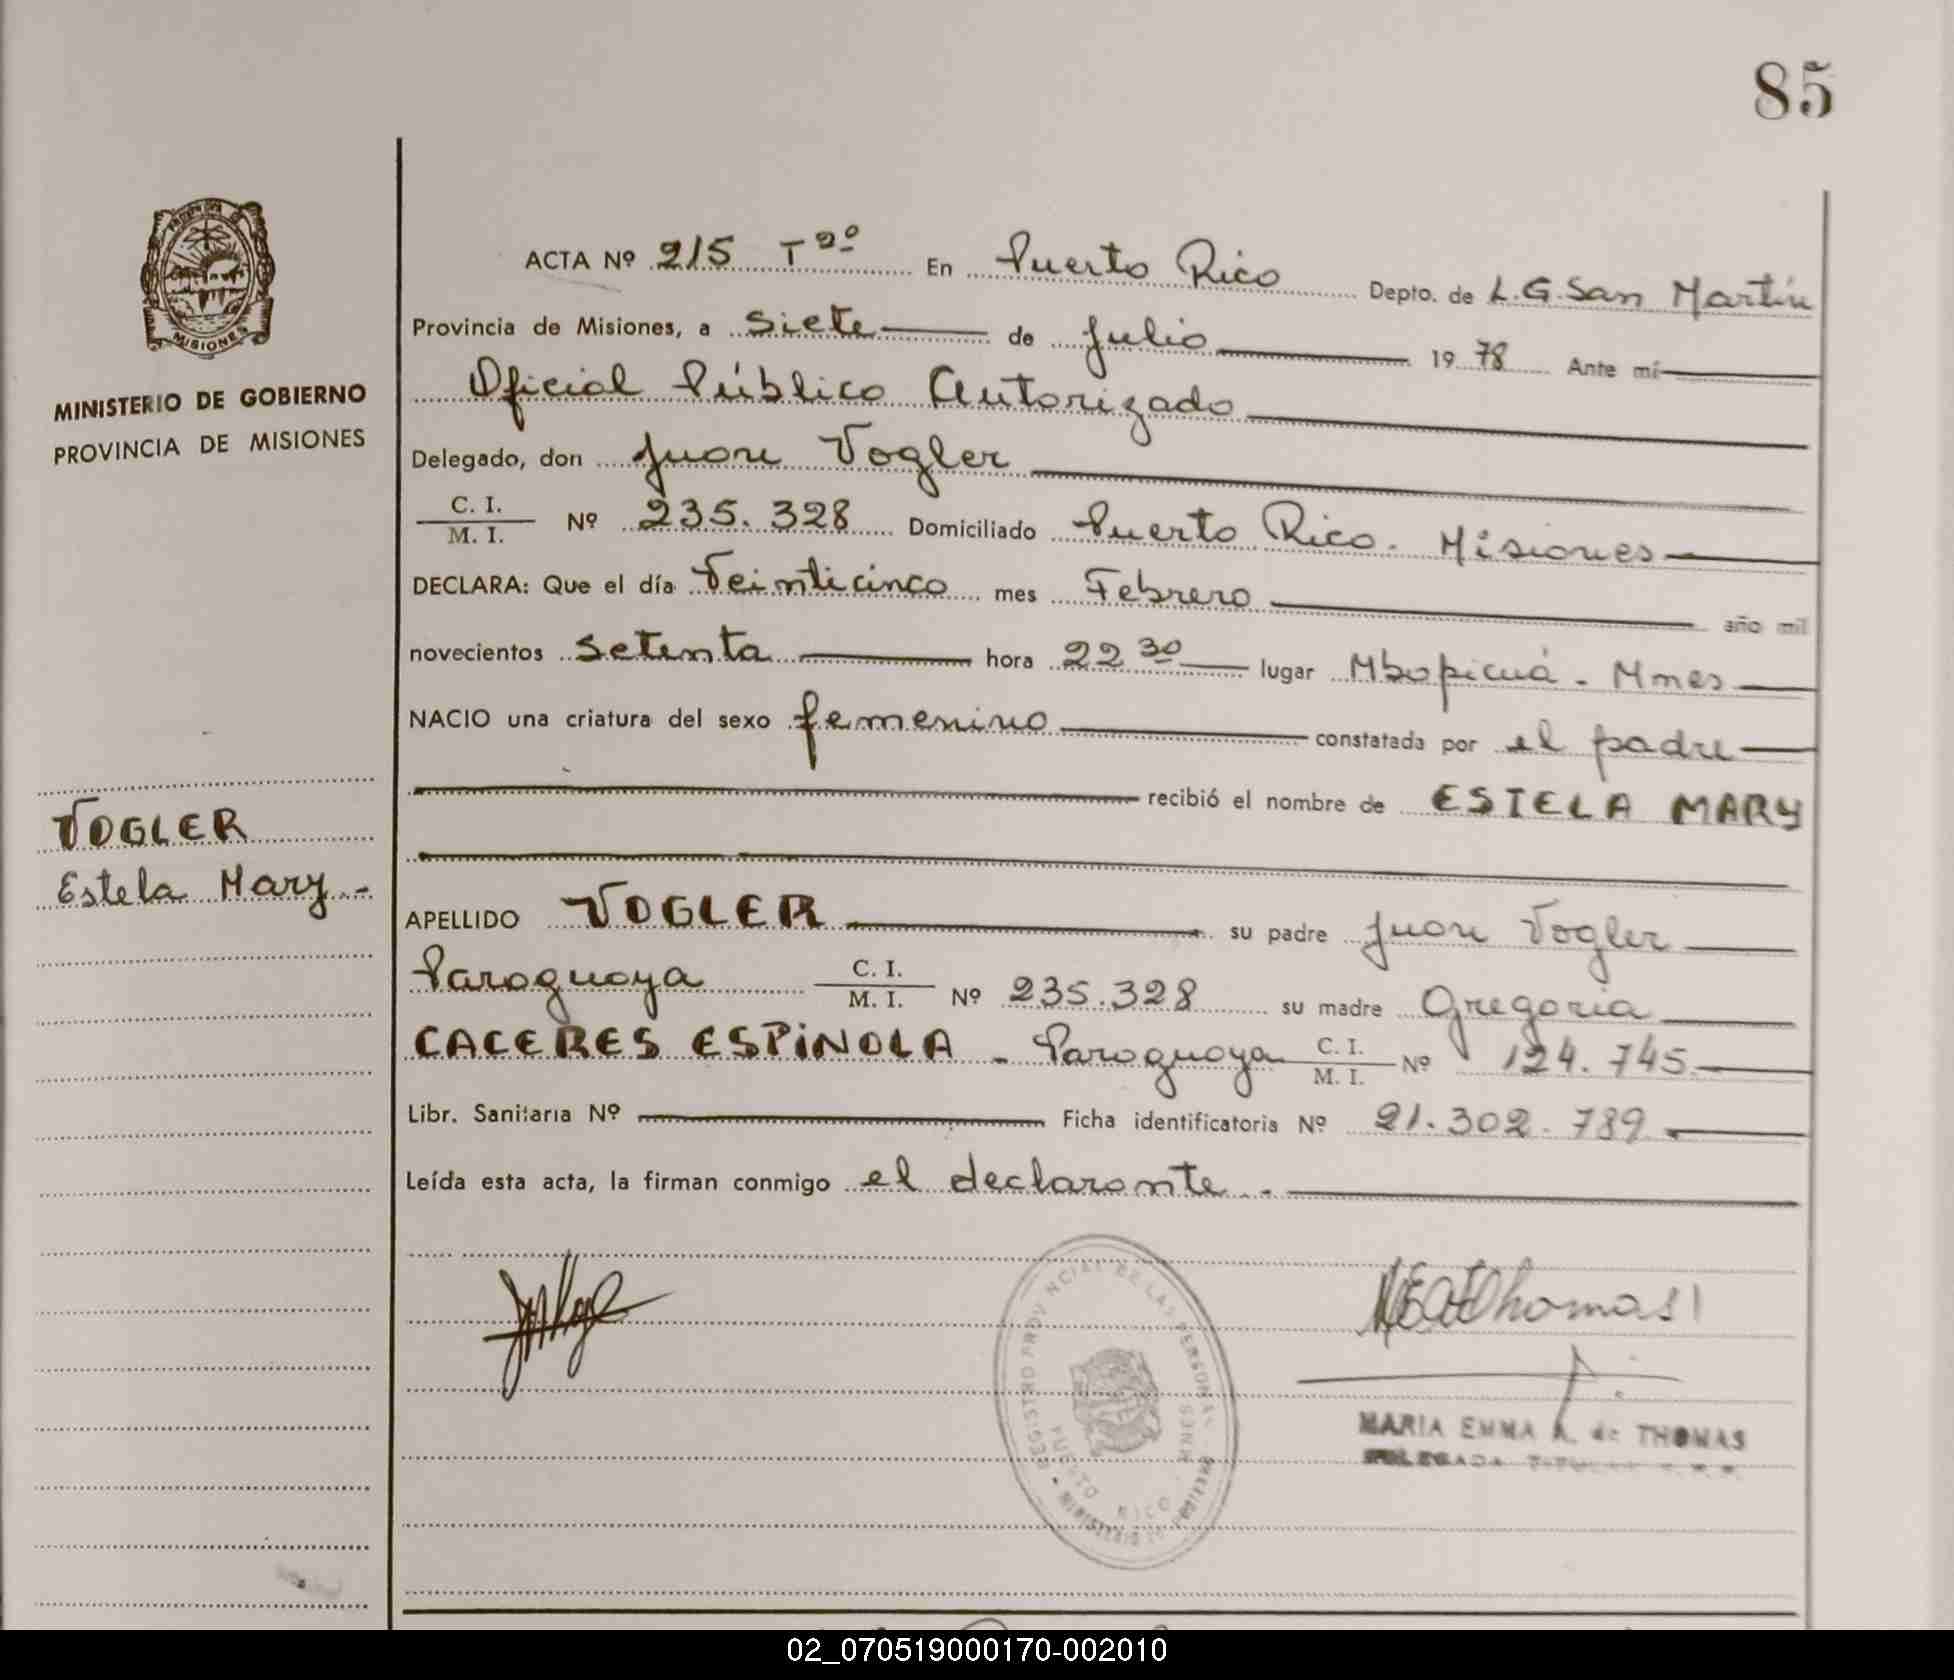 85
ACTA Nº 215 T 2º En Puerto Rico Depto. de L.G. San Martín
Provincia de Misiones, a siete de julio 19 78 Ante mí
Oficial Público Autorizado
Delegado, don Juan Vogler
C. I.
M. I. Nº 235.328 Domiciliado Puerto Rico. Misiones
DECLARA: Que el día Veinticinco mes Febrero año mil
novecientos setenta hora 22 30 lugar Mbopicuá - Mnes
NACIO una criatura del sexo femenino constatada por el padre
recibió el nombre de ESTELA MARY
APELLIDO VOGLER su padre Juan Vogler
Paraguaya C. I.
M. I. Nº 235.328 su madre Gregoria
CACERES ESPiNOLA - Paraguaya C. I.
M. I. Nº 124.745
Libr. Sanitaria Nº Ficha identificatoria Nº 21.302.789
Leída esta acta, la firman conmigo el declarante.
MISIONES
MINISTERIO DE GOBIERNO
PROVINCIA DE MISIONES
VOGLER
Estela Mary.-
REGISTRO PROVINCIAL DE LAS PERSONAS
PUERTO RICO
Thomas
MARIA EMMA A. de THOMAS
DELEGADA TITULAR
02_070519000170-002010